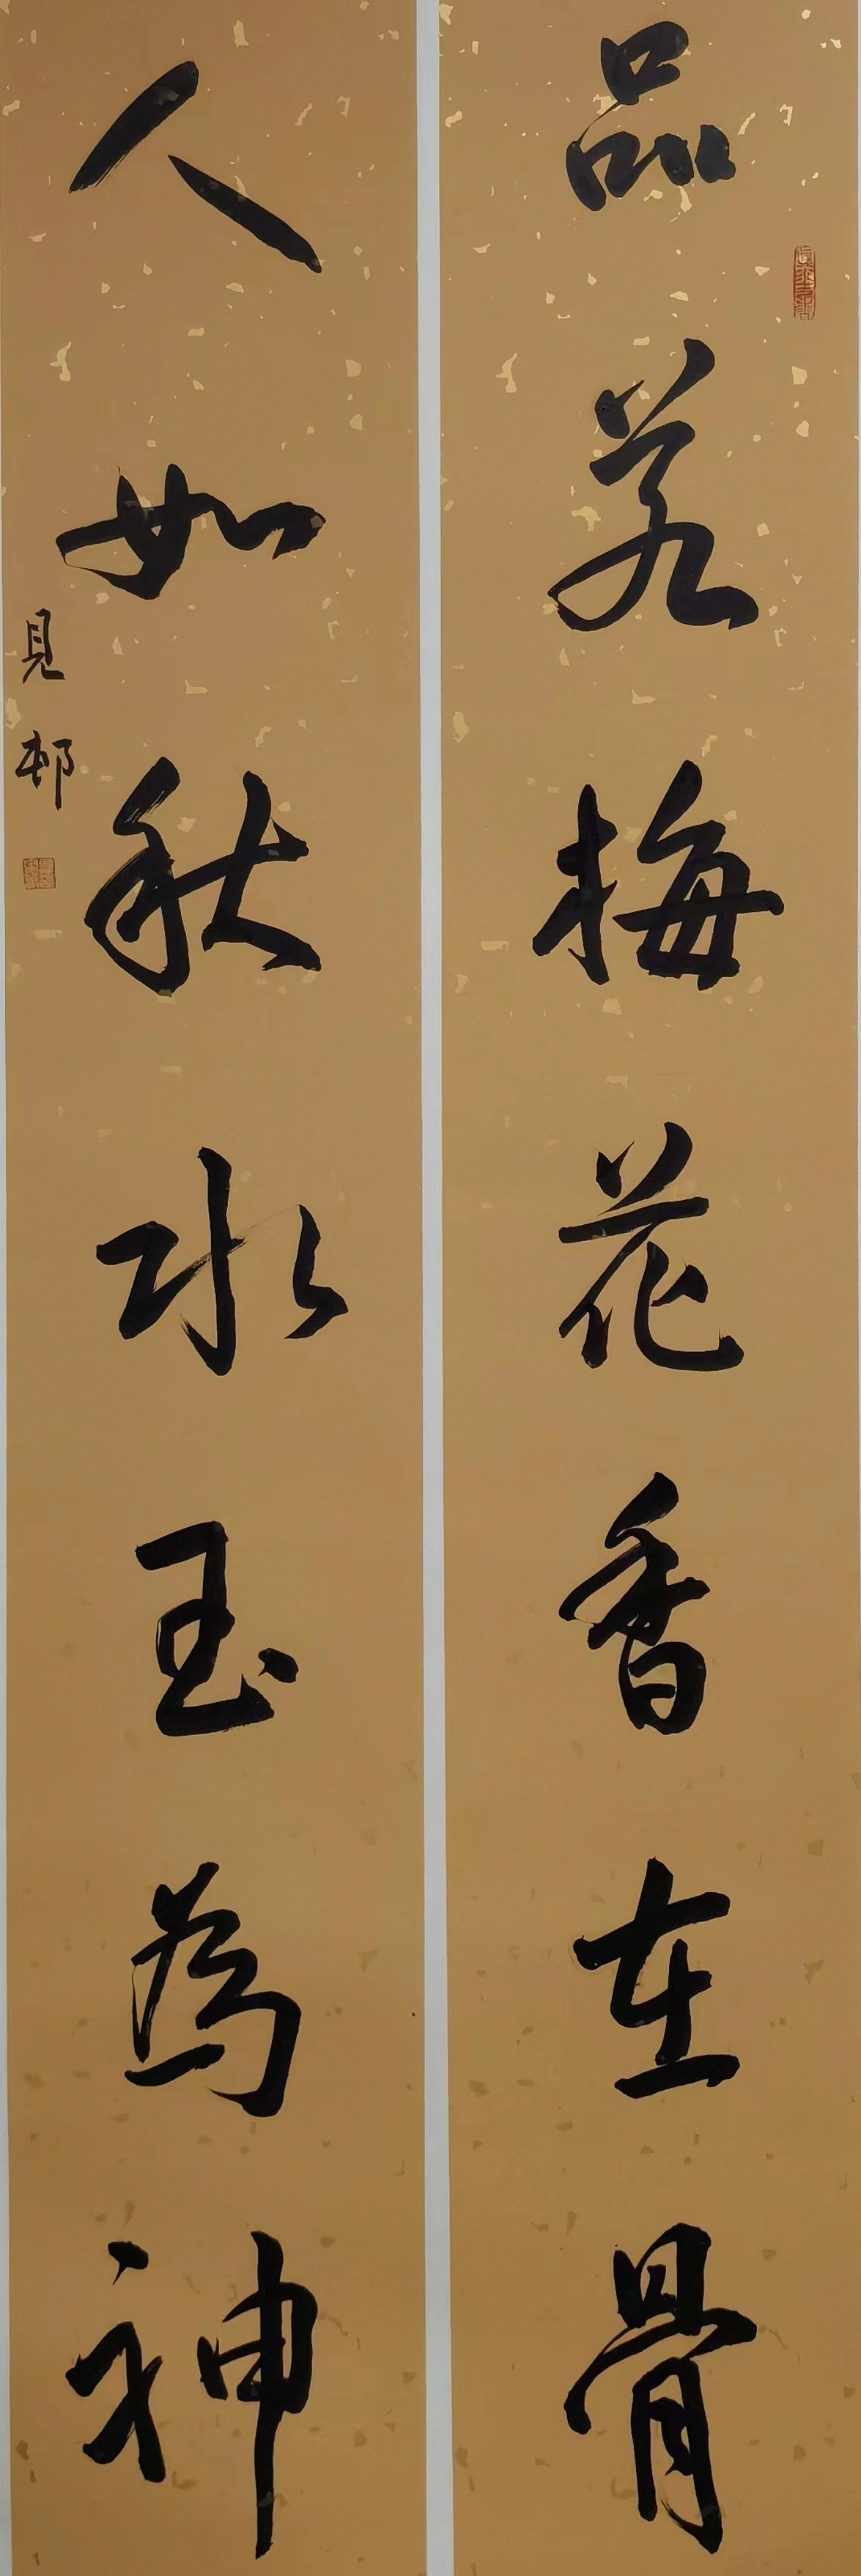 品若梅花香在骨
人如秋水玉為神
見邨